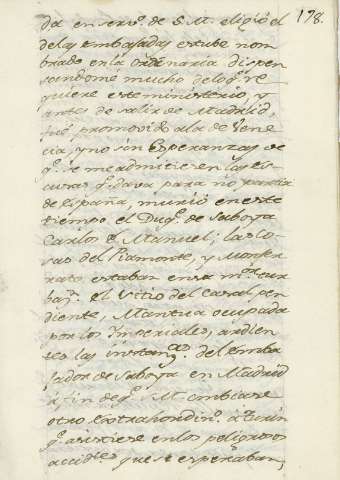 178.
da en serv.º de S. M. eligio el
de las embajadas estube nom
brado en la ordinaria dispen
sandome mucho de lo q.e re
quiere este ministerio, y
antes de salir de Madrid,
fuè promovido a la de Vene
cia, y no sin esperanzas de
q.e se me admitieren las es
cusas q.e dava para no partir
de España, murió en este
tiempo el Duq.e de Saboya
Carlos Manuel; las co
sas del Piamonte, y Monfer
rato estaban en sa m.or tur
baz.n el sitio del Casal pen
diente, Mantua ocupada
por los Imperiales, ardien
tes las instanz.as del emba
jador de Saboya en Madrid
à fin de q.e S. M. embiase
otro extrahordin.º à Turin
q.e asistiese en los peligrosos
accid.es que se esperaban,